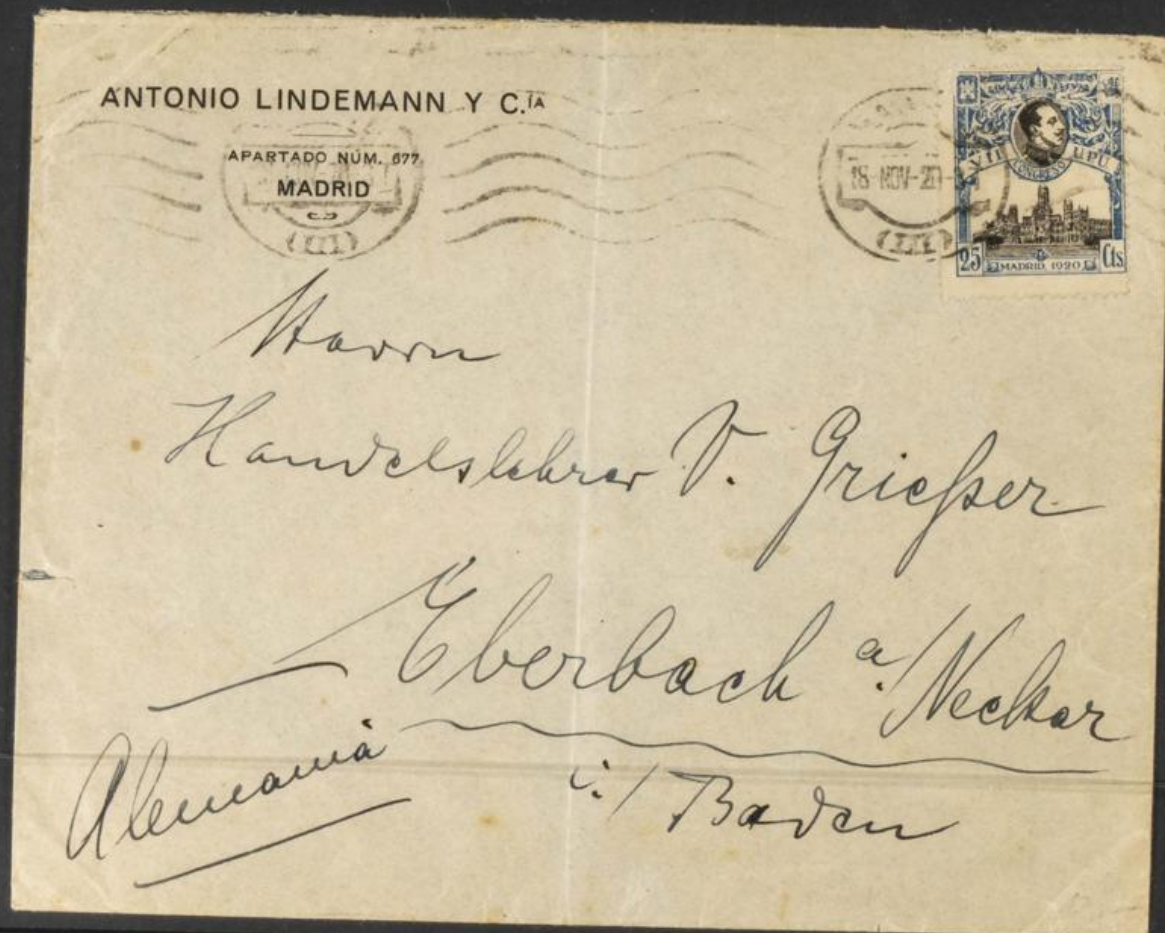 ANTONIO LINDEMANN Y C.IA
APARTADO NÚM. 677
MADRID
(III)
18 NOV-20
(III)
VII CONGRESO UPU
25 MADRID 1920 Cts
Herrn
Handelslehrer V. Grießer
Eberbach a/Neckar
i./Baden
Alemania